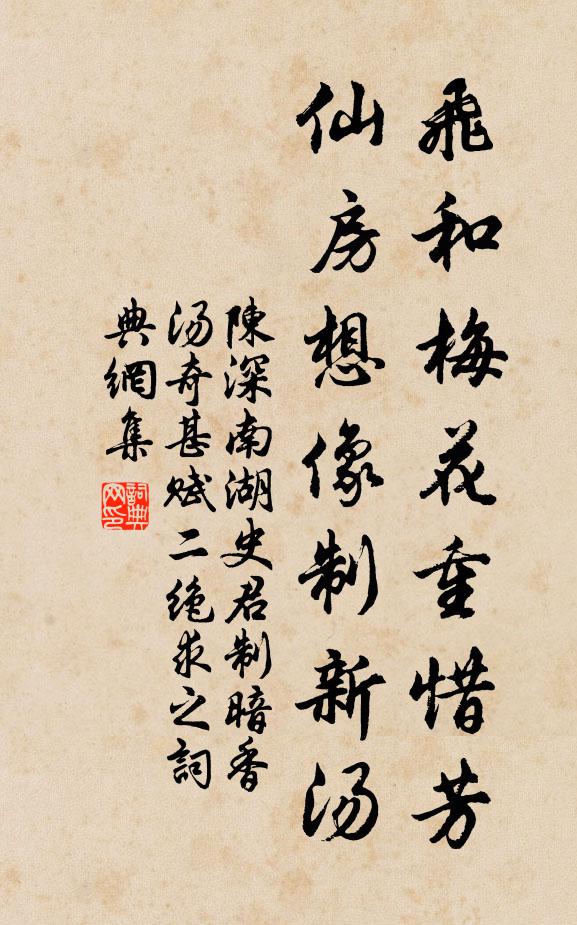 飛和梅花重惜芳
仙房想像制新湯
陳深南湖史君制暗香
湯奇甚賦二絶求之詞
典網集
詞典网印